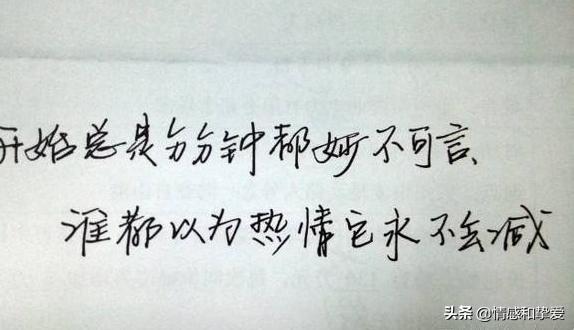 开始总是分分钟都妙不可言、
谁都以为热情它永不会减
头条 @情感和挚爱